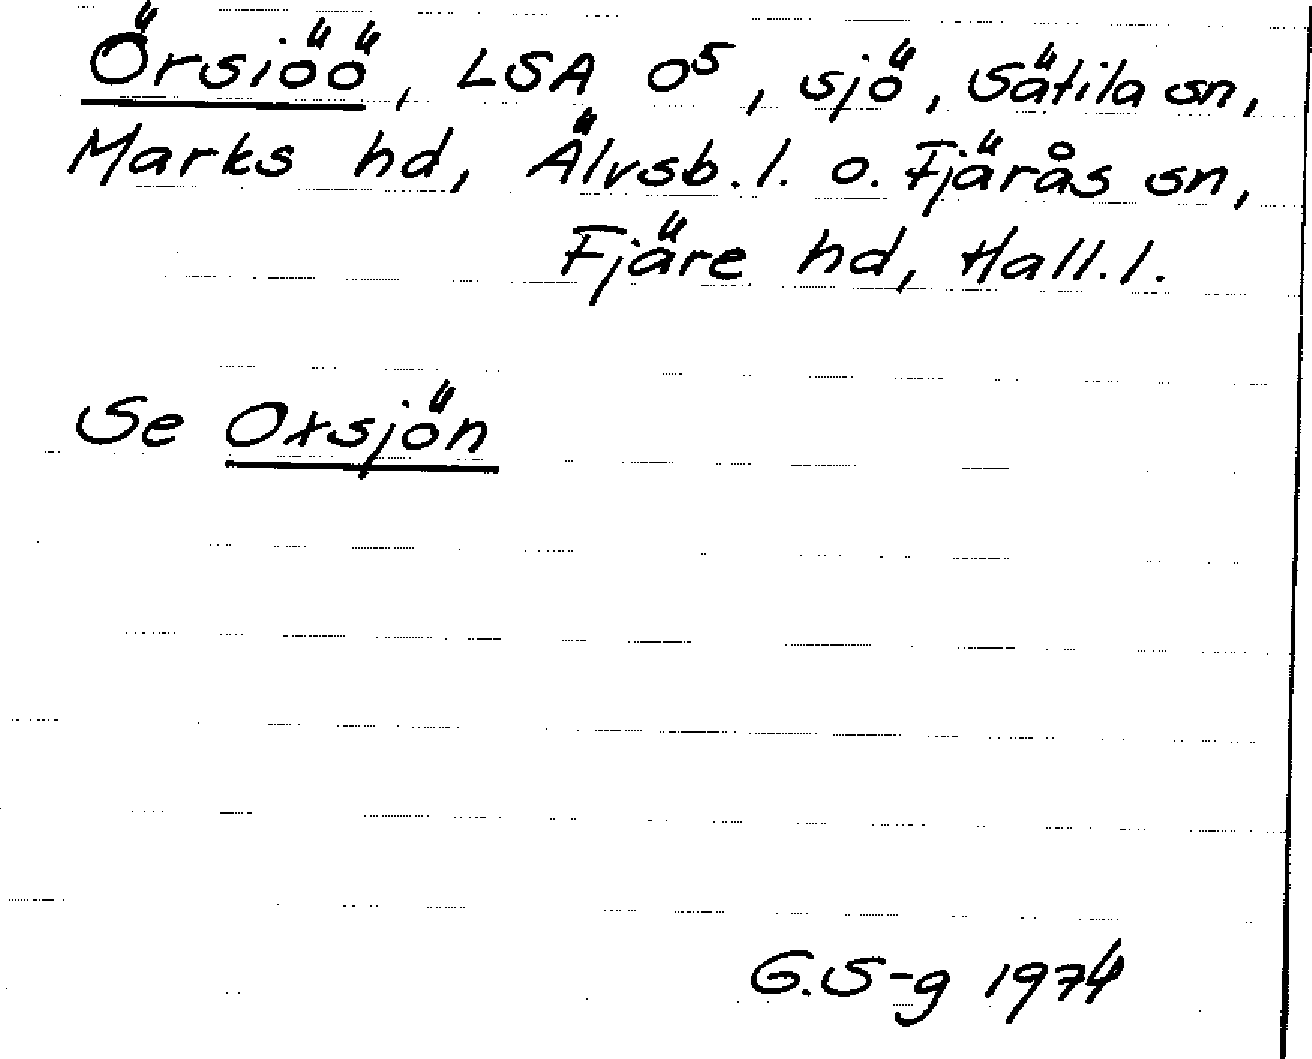 Örsiöö, LSA O⁵, sjö, Sätila sn,
Marks hd, Älvsb. l. o. Fjärås sn,
Fjäre hd, Hall. l.
Se Oxsjön
G.S-g 1974